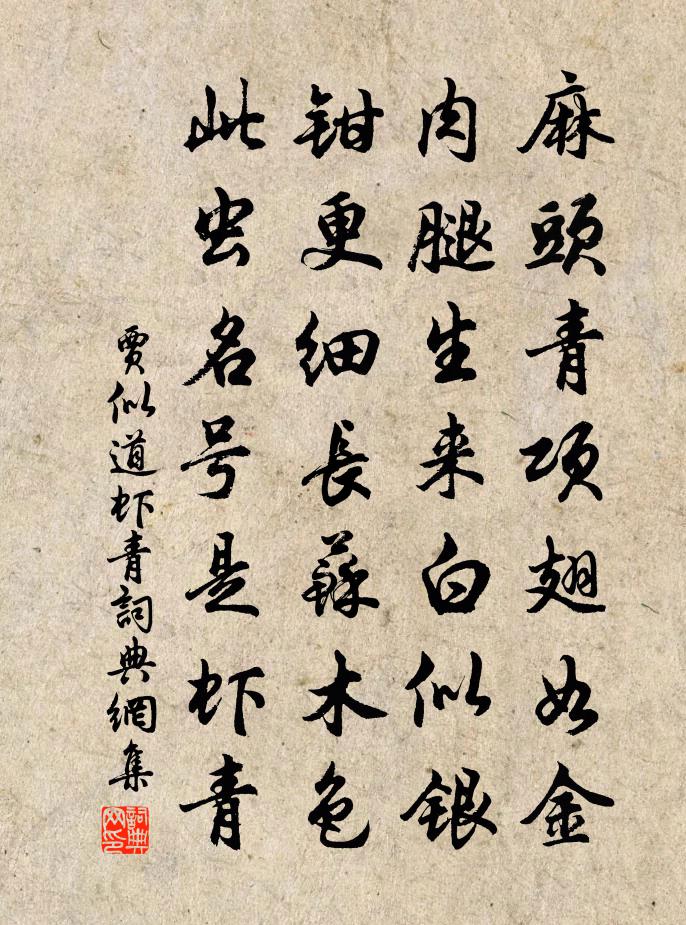 麻頭青項翅如金
肉腿生来白似銀
鉗更細長蘇木色
此虫名号是虾青
賈似道虾青詞典網集
詞典网印